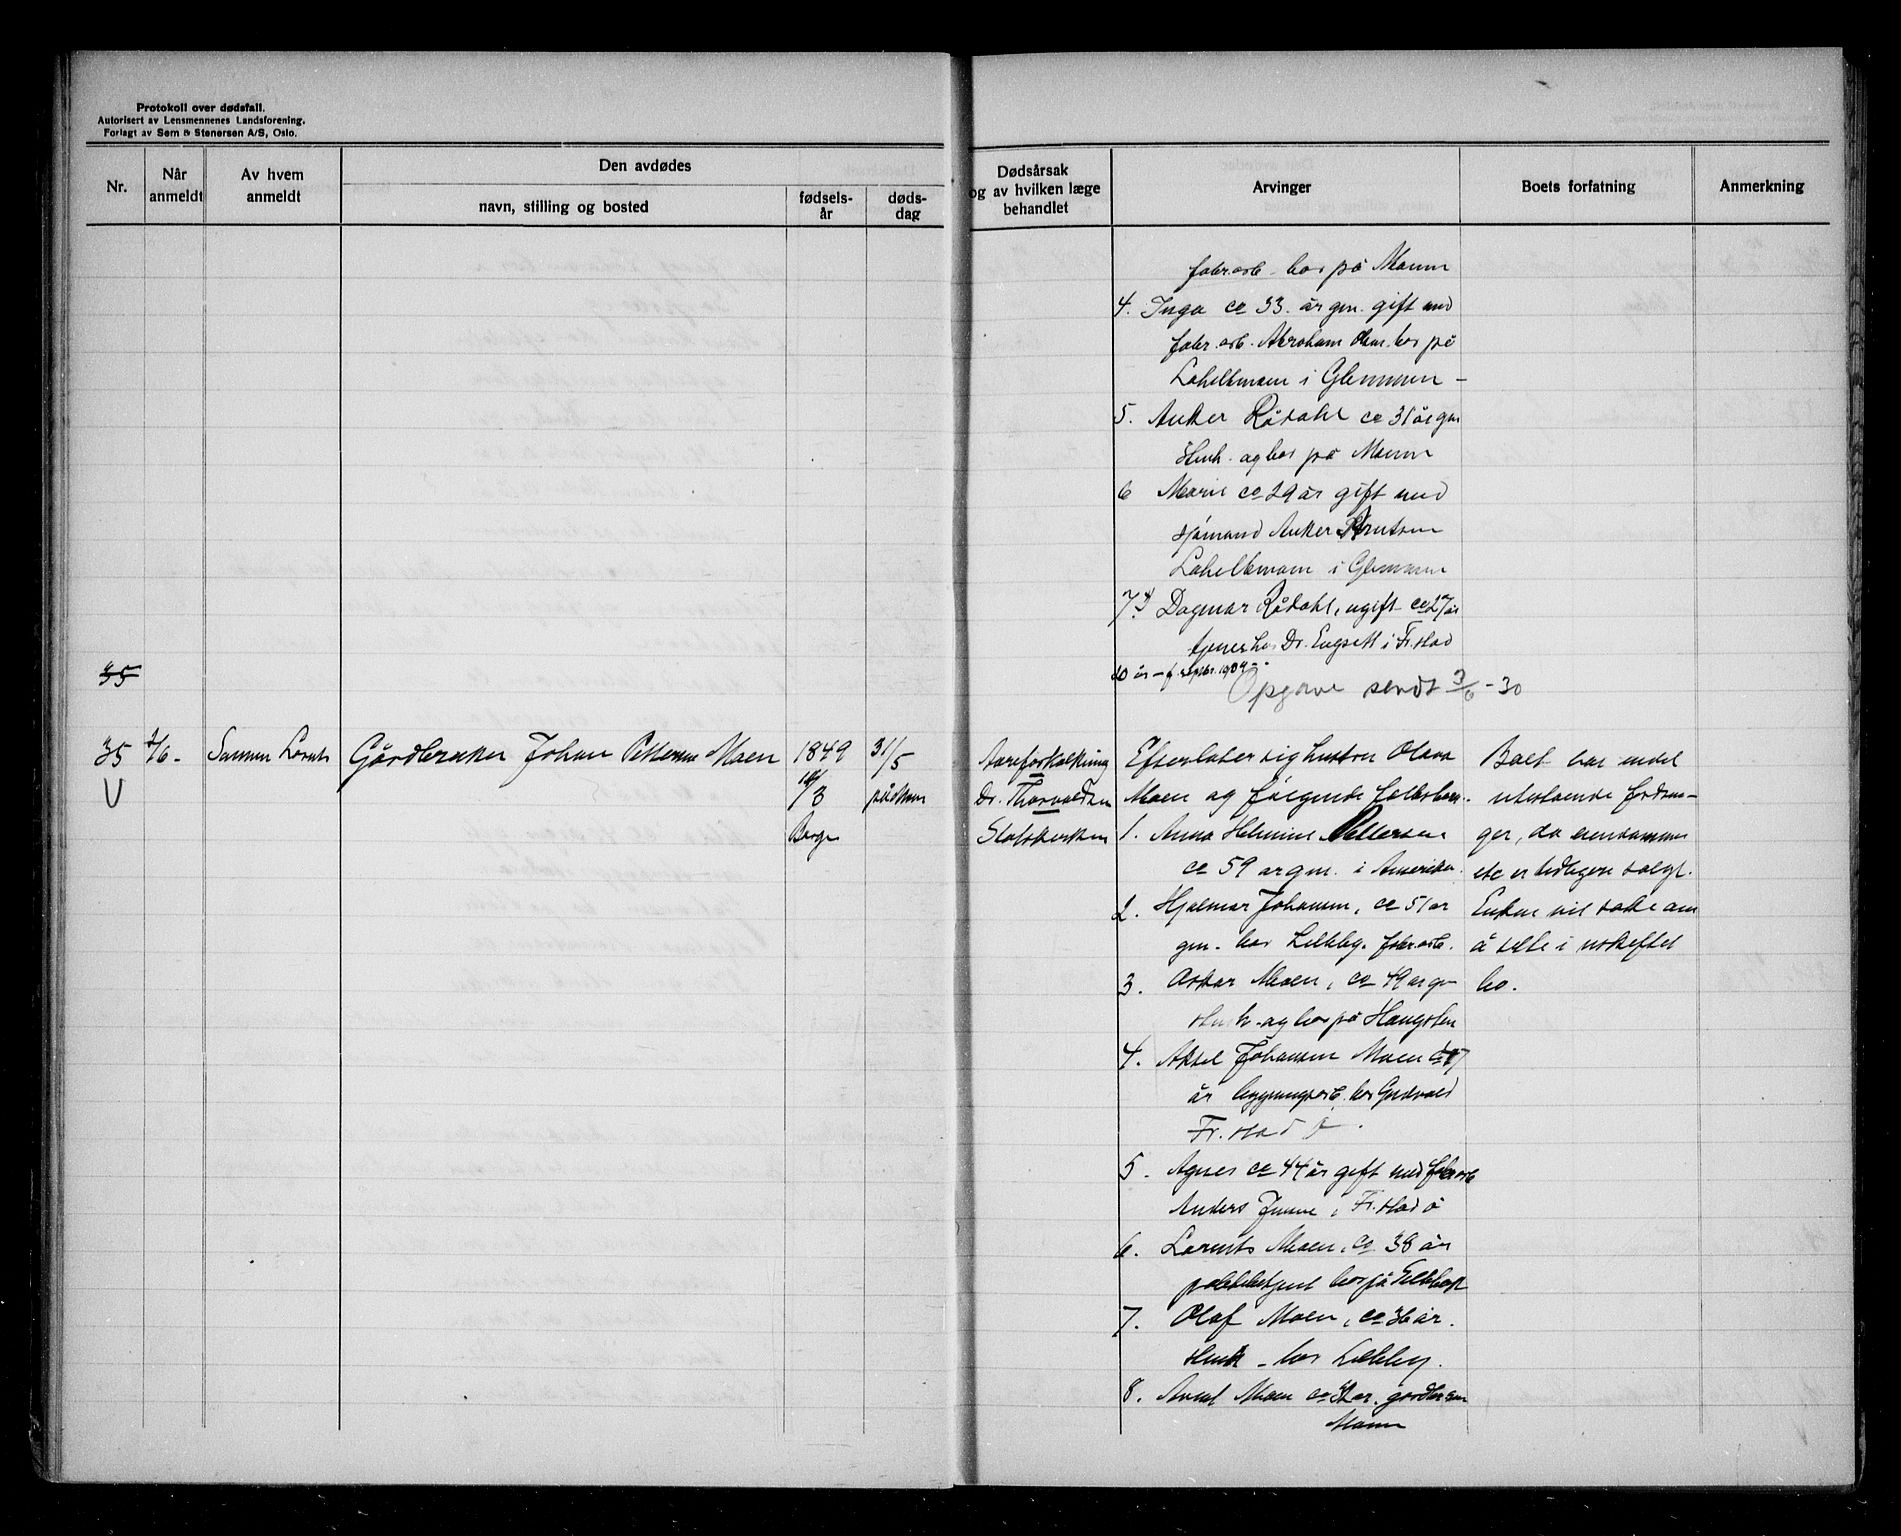 Protokoll over dødsfall.
Autorisert av Lensmennenes Landsforening.
Forlagt av Sem & Stenersen A/S, Oslo.
Nr.
Når anmeldt
Av hvem anmeldt
Den avdødes
navn, stilling og bosted
fødsels-år
døds-dag
Dødsårsak og av hvilken læge behandlet
Arvinger
Boets forfatning
Anmerkning
fabr.arb. bor på Moum
4. Inga ca 33. år gm. gift med
fabr.arb. Abraham bor på
Lahellemoen i Glemmen -
5. Anker Rødahl ca 31 år gm
stenh. og bor på Moum
6 Marie ca 29 år gift med
sjømand Anker Knutsen
Lahellemoen i Glemmen
7. Dagmar Rødahl, ugift ca 27 år
tjener hos Dr. Engsett i Fr.stad
20 år - f. septbr. 1909
Opgave sendt 3/6 - 30
35
35
2/6-
Sønnen Lorents
Gårdbruker Johan Petterson Moen
1849
31/5
V
14/3
på
Borge
Aareforkalkning
Dr. Thorvaldsen
Statskirken
Efterlater sig hustru Olava
Moen og følgende fellesbarn.
1. Anna Helmine Pettersen
ca 59 år gm. i Amerika.
2. Hjalmar Johansen, ca 51 år
gm. bor Lilleby. fabr.arb.
3. Oskar Moen, ca 49 år gm
stenh. og bor på Haugsten
4. Aksel Johansen Moen ca 47
år bygningsarb. bor
Fr.stad ø.
5. Agnes ca 44 år gift med fabr.arb
Anders i Fr.stad ø
6. Lorents Moen, ca 38 år
politibetjent bor på
7. Olaf Moen, ca 36 år.
stenh - bor Lilleby.
8. Arent Moen ca år. gårdbruker
Moum
Boet har endel
utestående fordrin-
ger, da eiendommen
etc er tidligere solgt.
Enken vil søke om
å sitte i uskiftet
bo.